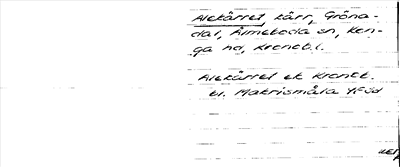 Alekärret, kärr, Gröna-
dal, Älmeboda sn, Kon-
ga hd, Kronob. l.
Alekärret ek Kronet.
t. Matrismåla